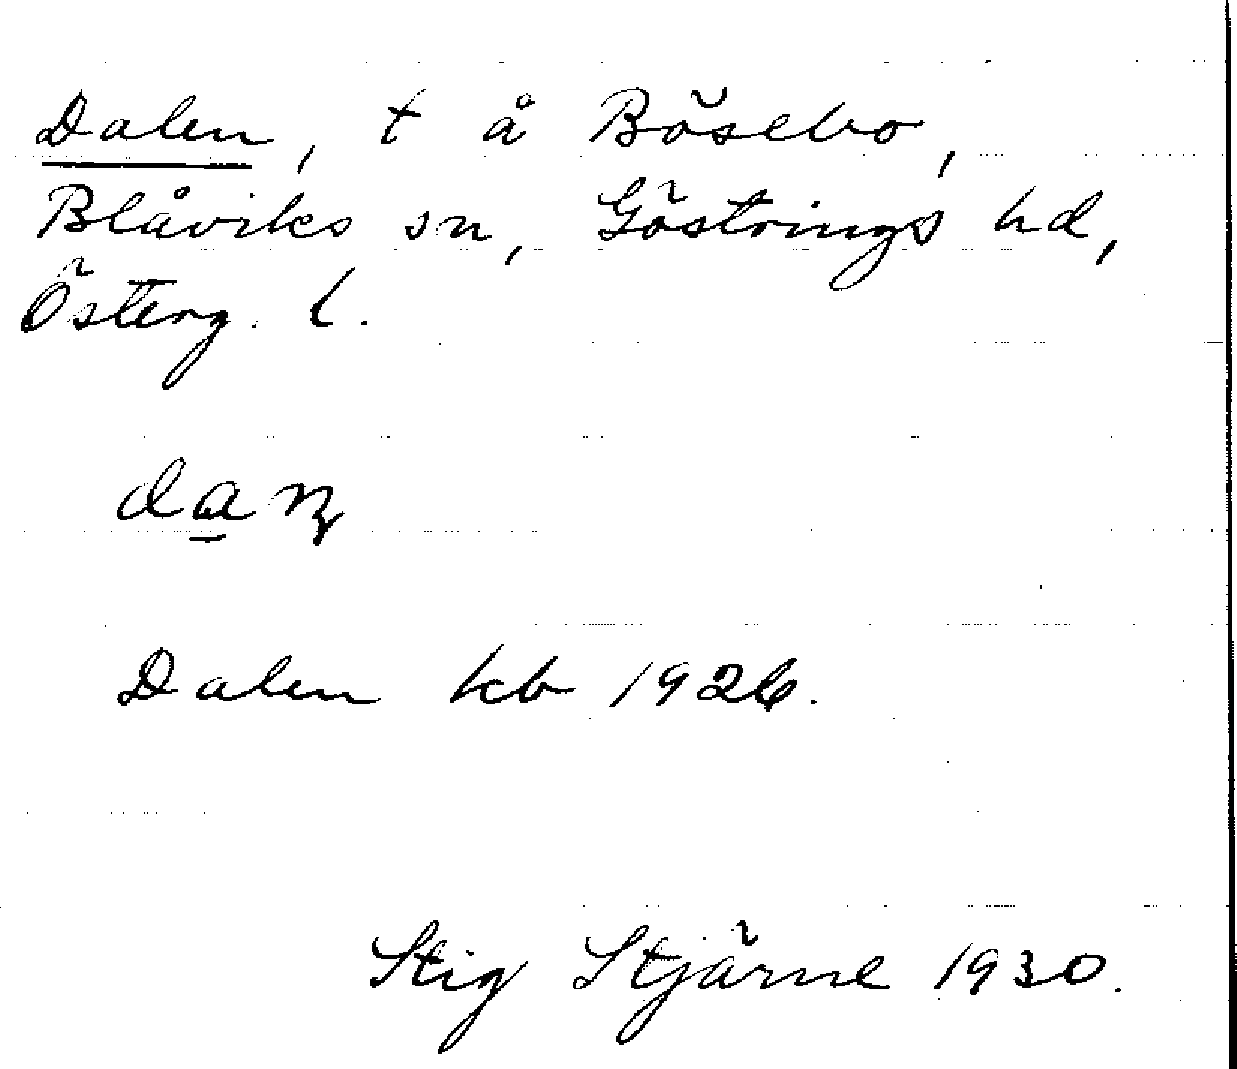 Dalen, t å Bösebo,
Blåviks sn, Göstrings hd,
Österg. l.
Dalen kb 1926.
Stig Stjärne 1930.